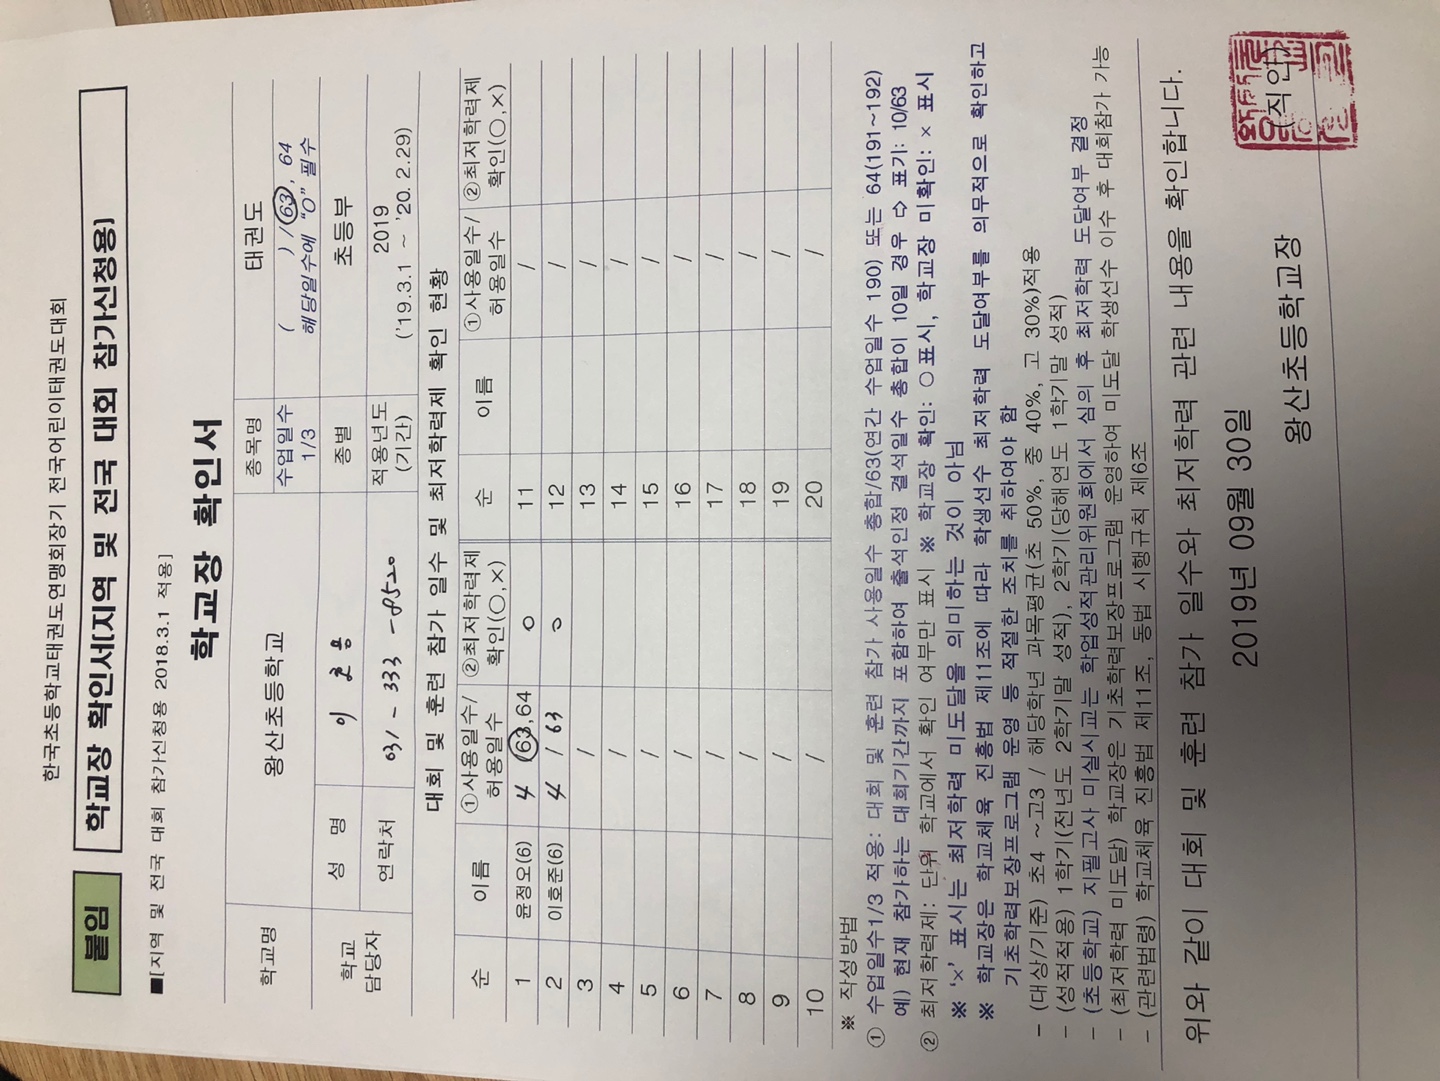 한국초등학교태권도연맹회장기 전국어린이태권도대회
붙임 학교장 확인서(지역 및 전국 대회 참가신청용)
■[지역 및 전국 대회 참가신청용 2018.3.1 적용]
학교장 확인서
학교명 왕산초등학교 종목명 태권도
수업일수 1/3 ( ) /63, 64
해당일수에 "O" 필수
학교 담당자 성 명 이 종별 초등부
연락처 031 - 333 - 8520 적용년도 (기간) 2019
('19.3.1 ~ '20. 2.29)
대회 및 훈련 참가 일수 및 최저학력제 확인 현황
순 이름 ①사용일수/허용일수 ②최저학력제 확인(○,×) 순 이름 ①사용일수/허용일수 ②최저학력제 확인(○,×)
1 윤정오(6) 4 63,64 ○ 11 /
2 이호준(6) 4 / 63 ○ 12 /
3 / 13 /
4 / 14 /
5 / 15 /
6 / 16 /
7 / 17 /
8 / 18 /
9 / 19 /
10 / 20 /
※ 작성방법
① 수업일수1/3 적용: 대회 및 훈련 참가 사용일수 총합/63(연간 수업일수 190) 또는 64(191~192)
예) 현재 참가하는 대회기간까지 포함하여 출석인정 결석일수 총합이 10일 경우 ⇨ 표기: 10/63
② 최저학력제: 단위 학교에서 확인 여부만 표시 ※ 학교장 확인: ○표시, 학교장 미확인: × 표시
※ '×' 표시는 최저학력 미도달을 의미하는 것이 아님
※ 학교장은 학교체육 진흥법 제11조에 따라 학생선수 최저학력 도달여부를 의무적으로 확인하고
기초학력보장프로그램 운영 등 적절한 조치를 취하여야 함
- (대상/기준) 초4 ~고3 / 해당학년 과목평균(초 50%, 중 40%, 고 30%)적용
- (성적적용) 1학기(전년도 2학기말 성적), 2학기(당해연도 1학기말 성적)
- (초등학교) 지필고사 미실시교는 학업성적관리위원회에서 심의 후 최저학력 도달여부 결정
- (최저학력 미도달) 학교장은 기초학력보장프로그램 운영하여 미도달 학생선수 이수 후 대회참가 가능
- (관련법령) 학교체육 진흥법 제11조, 동법 시행규칙 제6조
위와 같이 대회 및 훈련 참가 일수와 최저학력 관련 내용을 확인합니다.
2019년 09월 30일
왕산초등학교장 (직인)